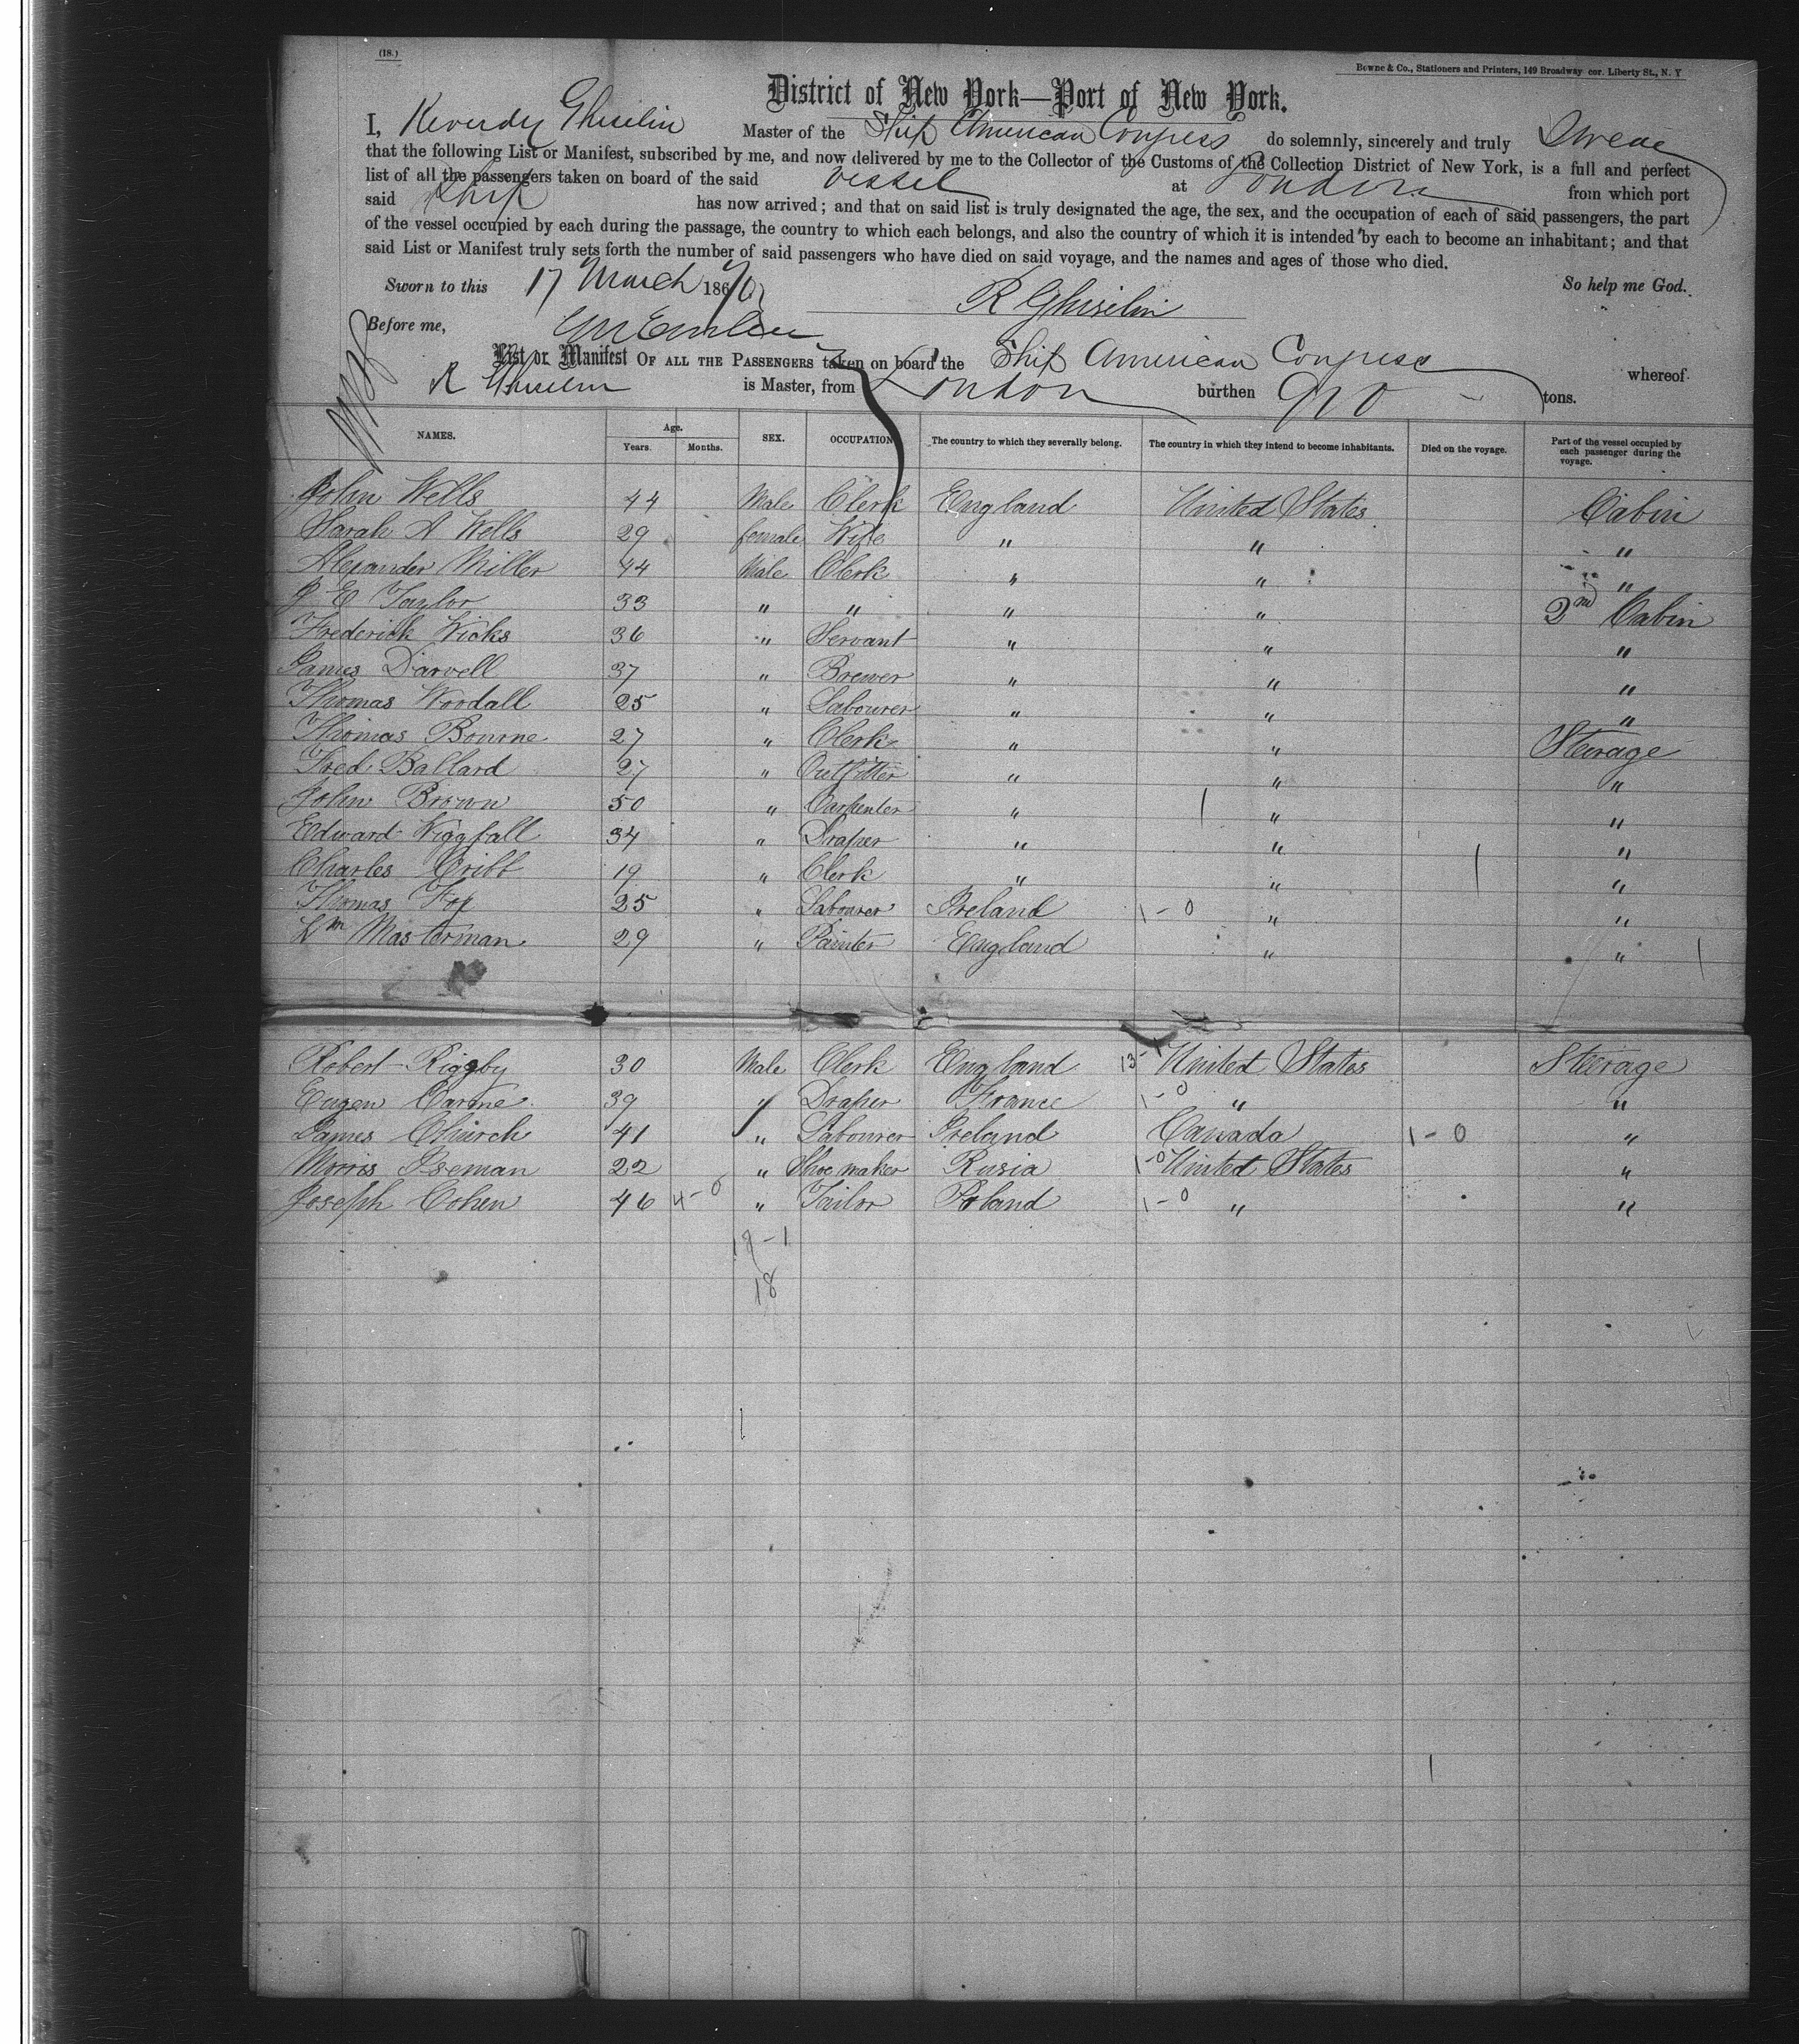 (18.)
Bowne & Co., Stationers and Printers, 149 Broadway cor. Liberty St., N. Y
District of New York—Port of New York.
I, Reverdy Ghiselin Master of the Ship American Congress do solemnly, sincerely and truly Swear
that the following List or Manifest, subscribed by me, and now delivered by me to the Collector of the Customs of the Collection District of New York, is a full and perfect
list of all the passengers taken on board of the said vessel at London from which port
said Ship has now arrived; and that on said list is truly designated the age, the sex, and the occupation of each of said passengers, the part
of the vessel occupied by each during the passage, the country to which each belongs, and also the country of which it is intended by each to become an inhabitant; and that
said List or Manifest truly sets forth the number of said passengers who have died on said voyage, and the names and ages of those who died.
Sworn to this 17 March 1870 So help me God.
R Ghiselin
Before me,
List or Manifest OF ALL THE PASSENGERS taken on board the Ship American Congress whereof
R Ghiselin is Master, from London burthen tons.
NAMES. Age. Years. Months. SEX. OCCUPATION The country to which they severally belong. The country in which they intend to become inhabitants. Died on the voyage. Part of the vessel occupied by each passenger during the voyage.
John Wells 44 Male Clerk England United States Cabin
Sarah A Wells 29 female Wife " " "
Alexander Miller 44 Male Clerk " " "
J E Taylor 33 " " " " 2nd Cabin
Frederick Wicks 36 " Servant " " "
James Darvell 37 " Brewer " " "
Thomas Woodall 25 " Labourer " " "
Thomas Bourne 27 " Clerk " " Steerage
Fred Ballard 27 " Outfitter " " "
John Brown 50 " Carpenter " " "
Edward Wiggfall 34 " Draper " " "
Charles Cribb 19 " Clerk " " "
Thomas Foy 25 " Labourer Ireland 1-0 " "
Wm Masterman 29 " Painter England " "
Robert Rigby 30 Male Clerk England 13-1 United States Steerage
Eugen Carme 39 " Draper France 1-0 " "
James Church 41 " Labourer Ireland Canada 1-0 "
Morris Iseman 22 " Shoe maker Rusia 1-0 United States "
Joseph Cohen 46 4-0 " Tailor Poland 1-0 " "
19-1
18